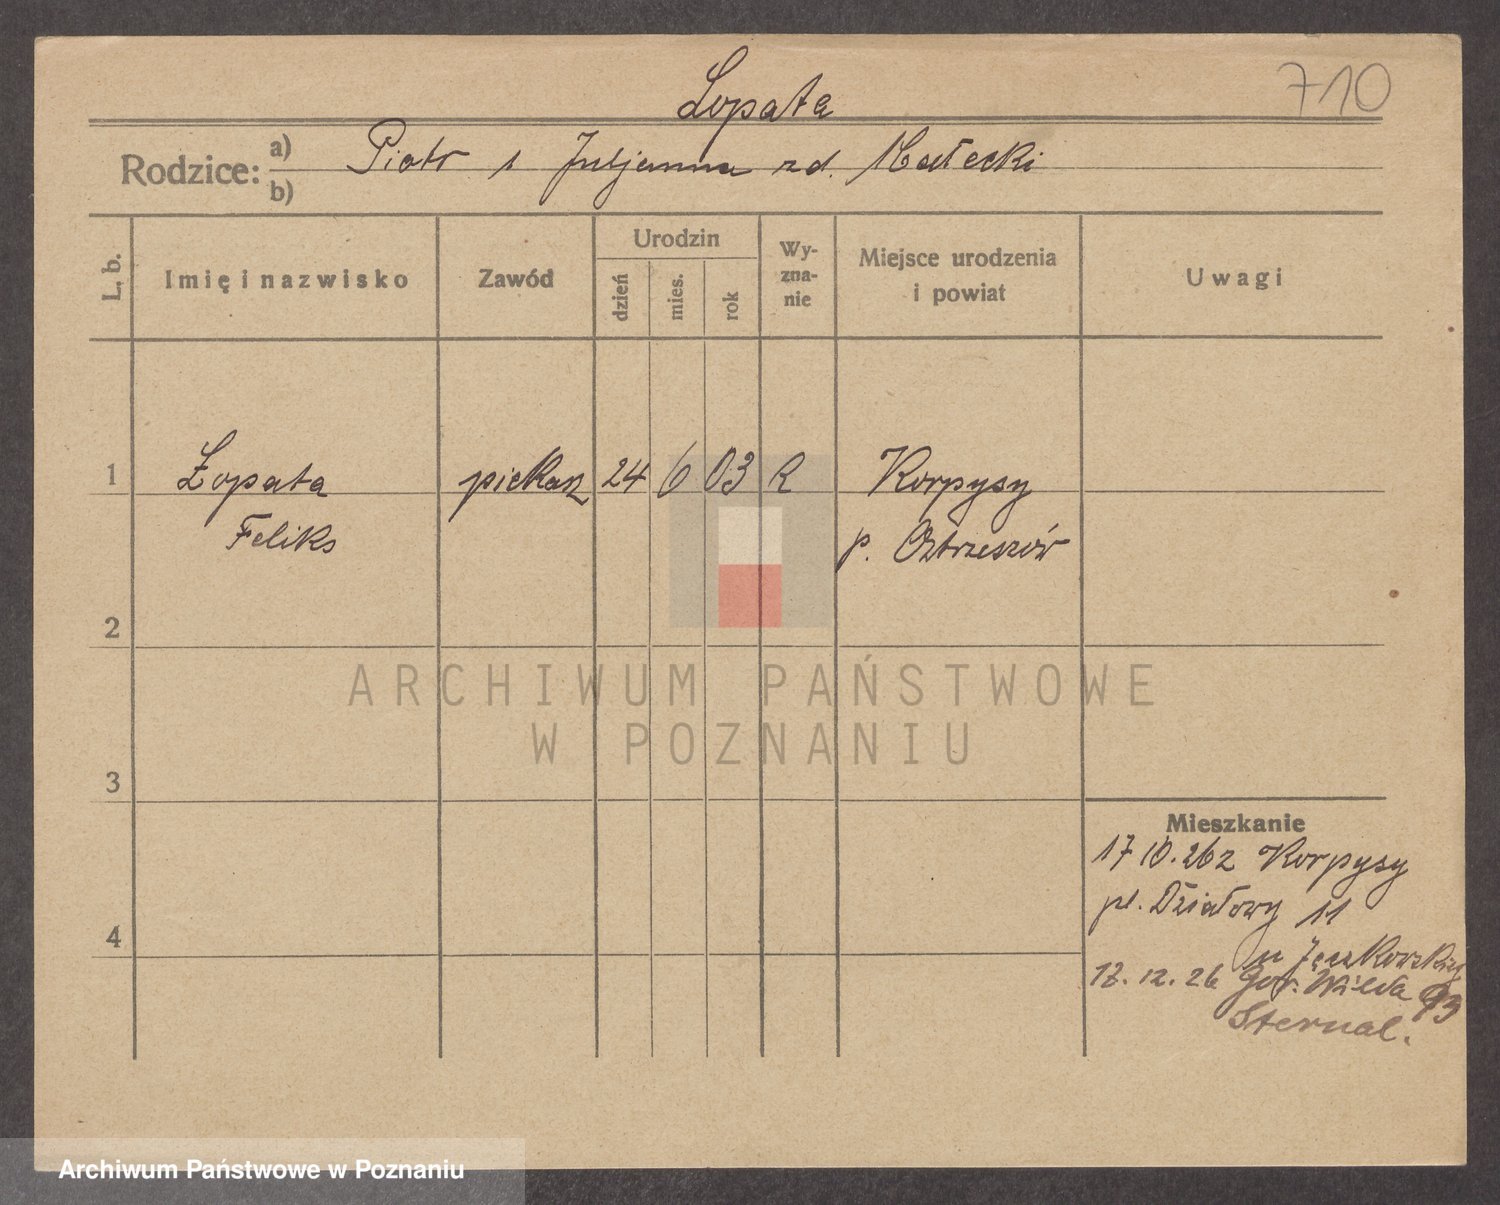 710
Łopata
Rodzice: a) b) Piotr i Juljanna zd. Małecki
L. b. Imię i nazwisko Zawód Urodzin dzień mies. rok Wy-zna-nie Miejsce urodzenia i powiat Uwagi
1 Łopata piekarz 24 6 03 R Korpysy
Feliks p. Ostrzeszów
2
3
Mieszkanie
17 10. 26 z Korpysy
pl. Działowy 11
4
u
17. 12. 26 Gór. Wilda 93
Sternal.
ARCHIWUM PAŃSTWOWE
W POZNANIU
Archiwum Państwowe w Poznaniu